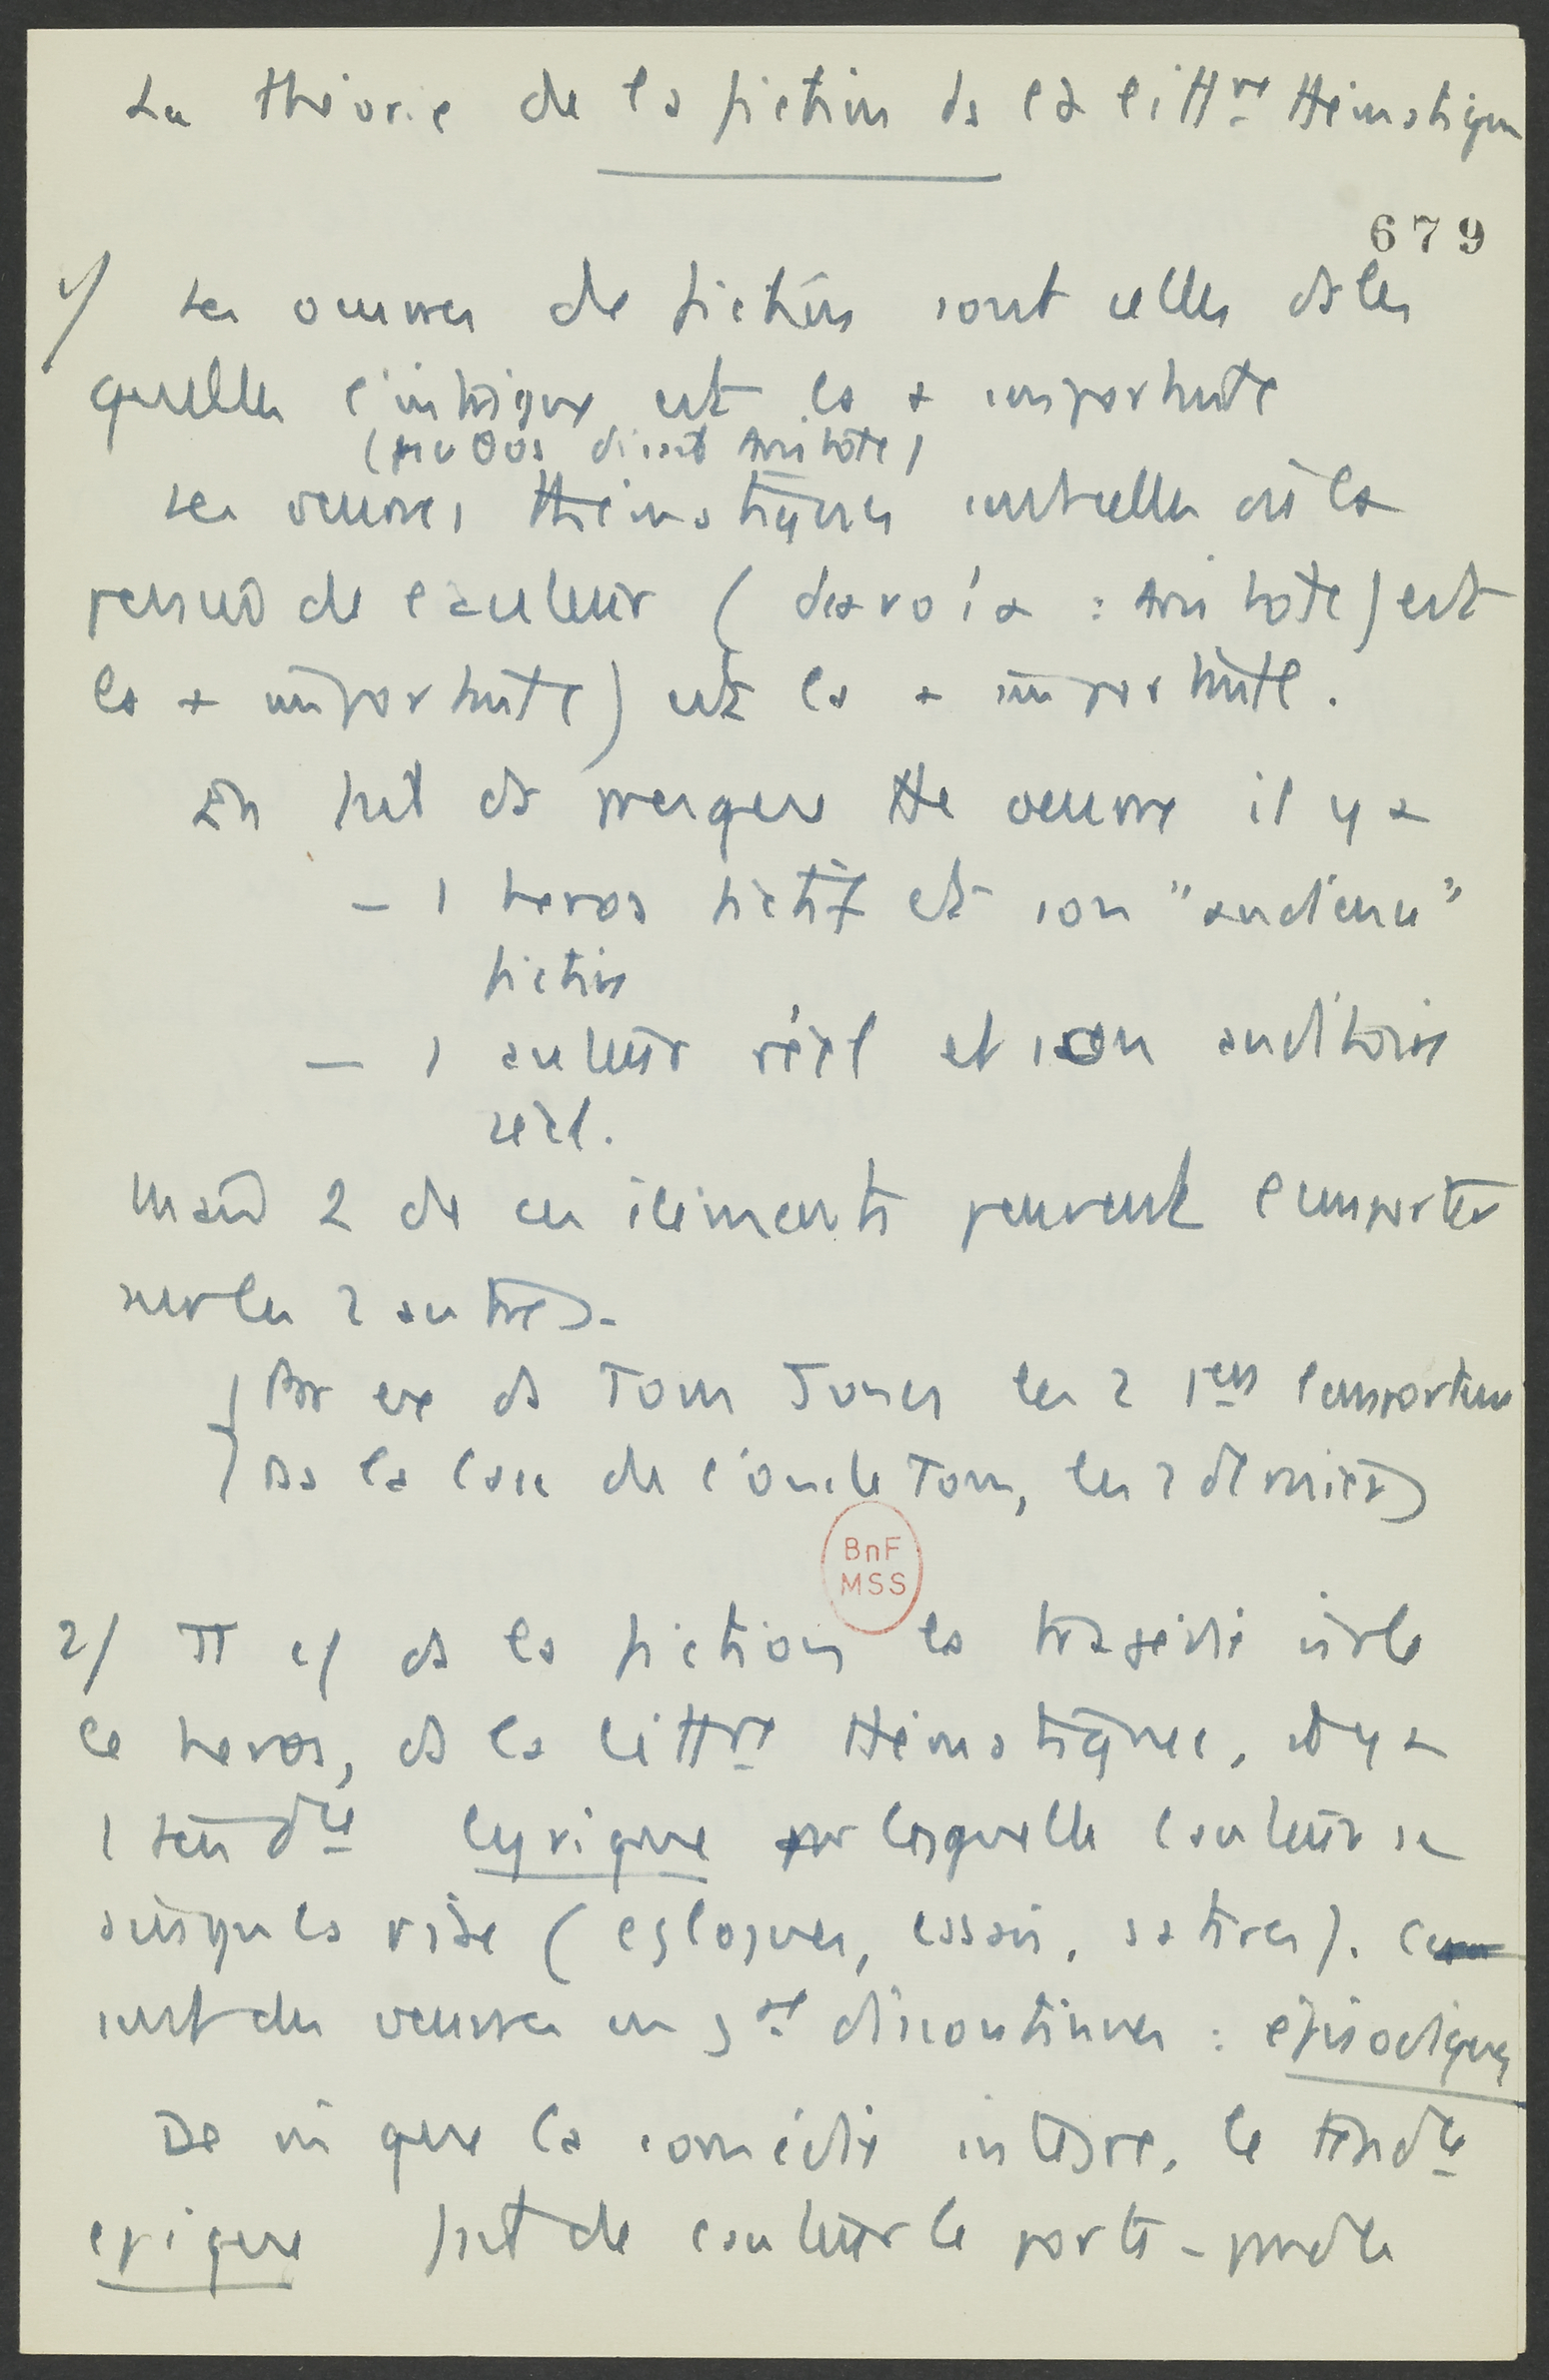 La théorie de la fiction ds la littre thématique
679
1/ Les oeuvres de fiction sont celles ds les
quelles l'intrigue est la + importante
(μυθος disait Aristote)
Les oeuvres thématiques sont celles où la
pensée de l'auteur (διανοια : Aristote) est
la + importante) est la + importante.
En fait ds presque tte oeuvre il y a
- 1 heros fictif et son "audience"
fictive
- 1 auteur réel et son auditoire
réel.
Mais 2 de ces éléments peuvent l'emporter
sur les 2 autres.
Par ex ds Tom Jones les 2 1ers l'emportent
Ds la case de l'oncle Tom, les 2 derniers
2/ De m que ds la fiction la tragédie isole
le heros, ds la littre thématique, il y a
1 tendce lyrique par laquelle l'auteur se
singularise (eglogues, essais, satires). Ce
sont des oeuvres en gal discontinues : épisodiques
De m que la comédie intègre, la tendce
epique fait de l'auteur le porte-parole